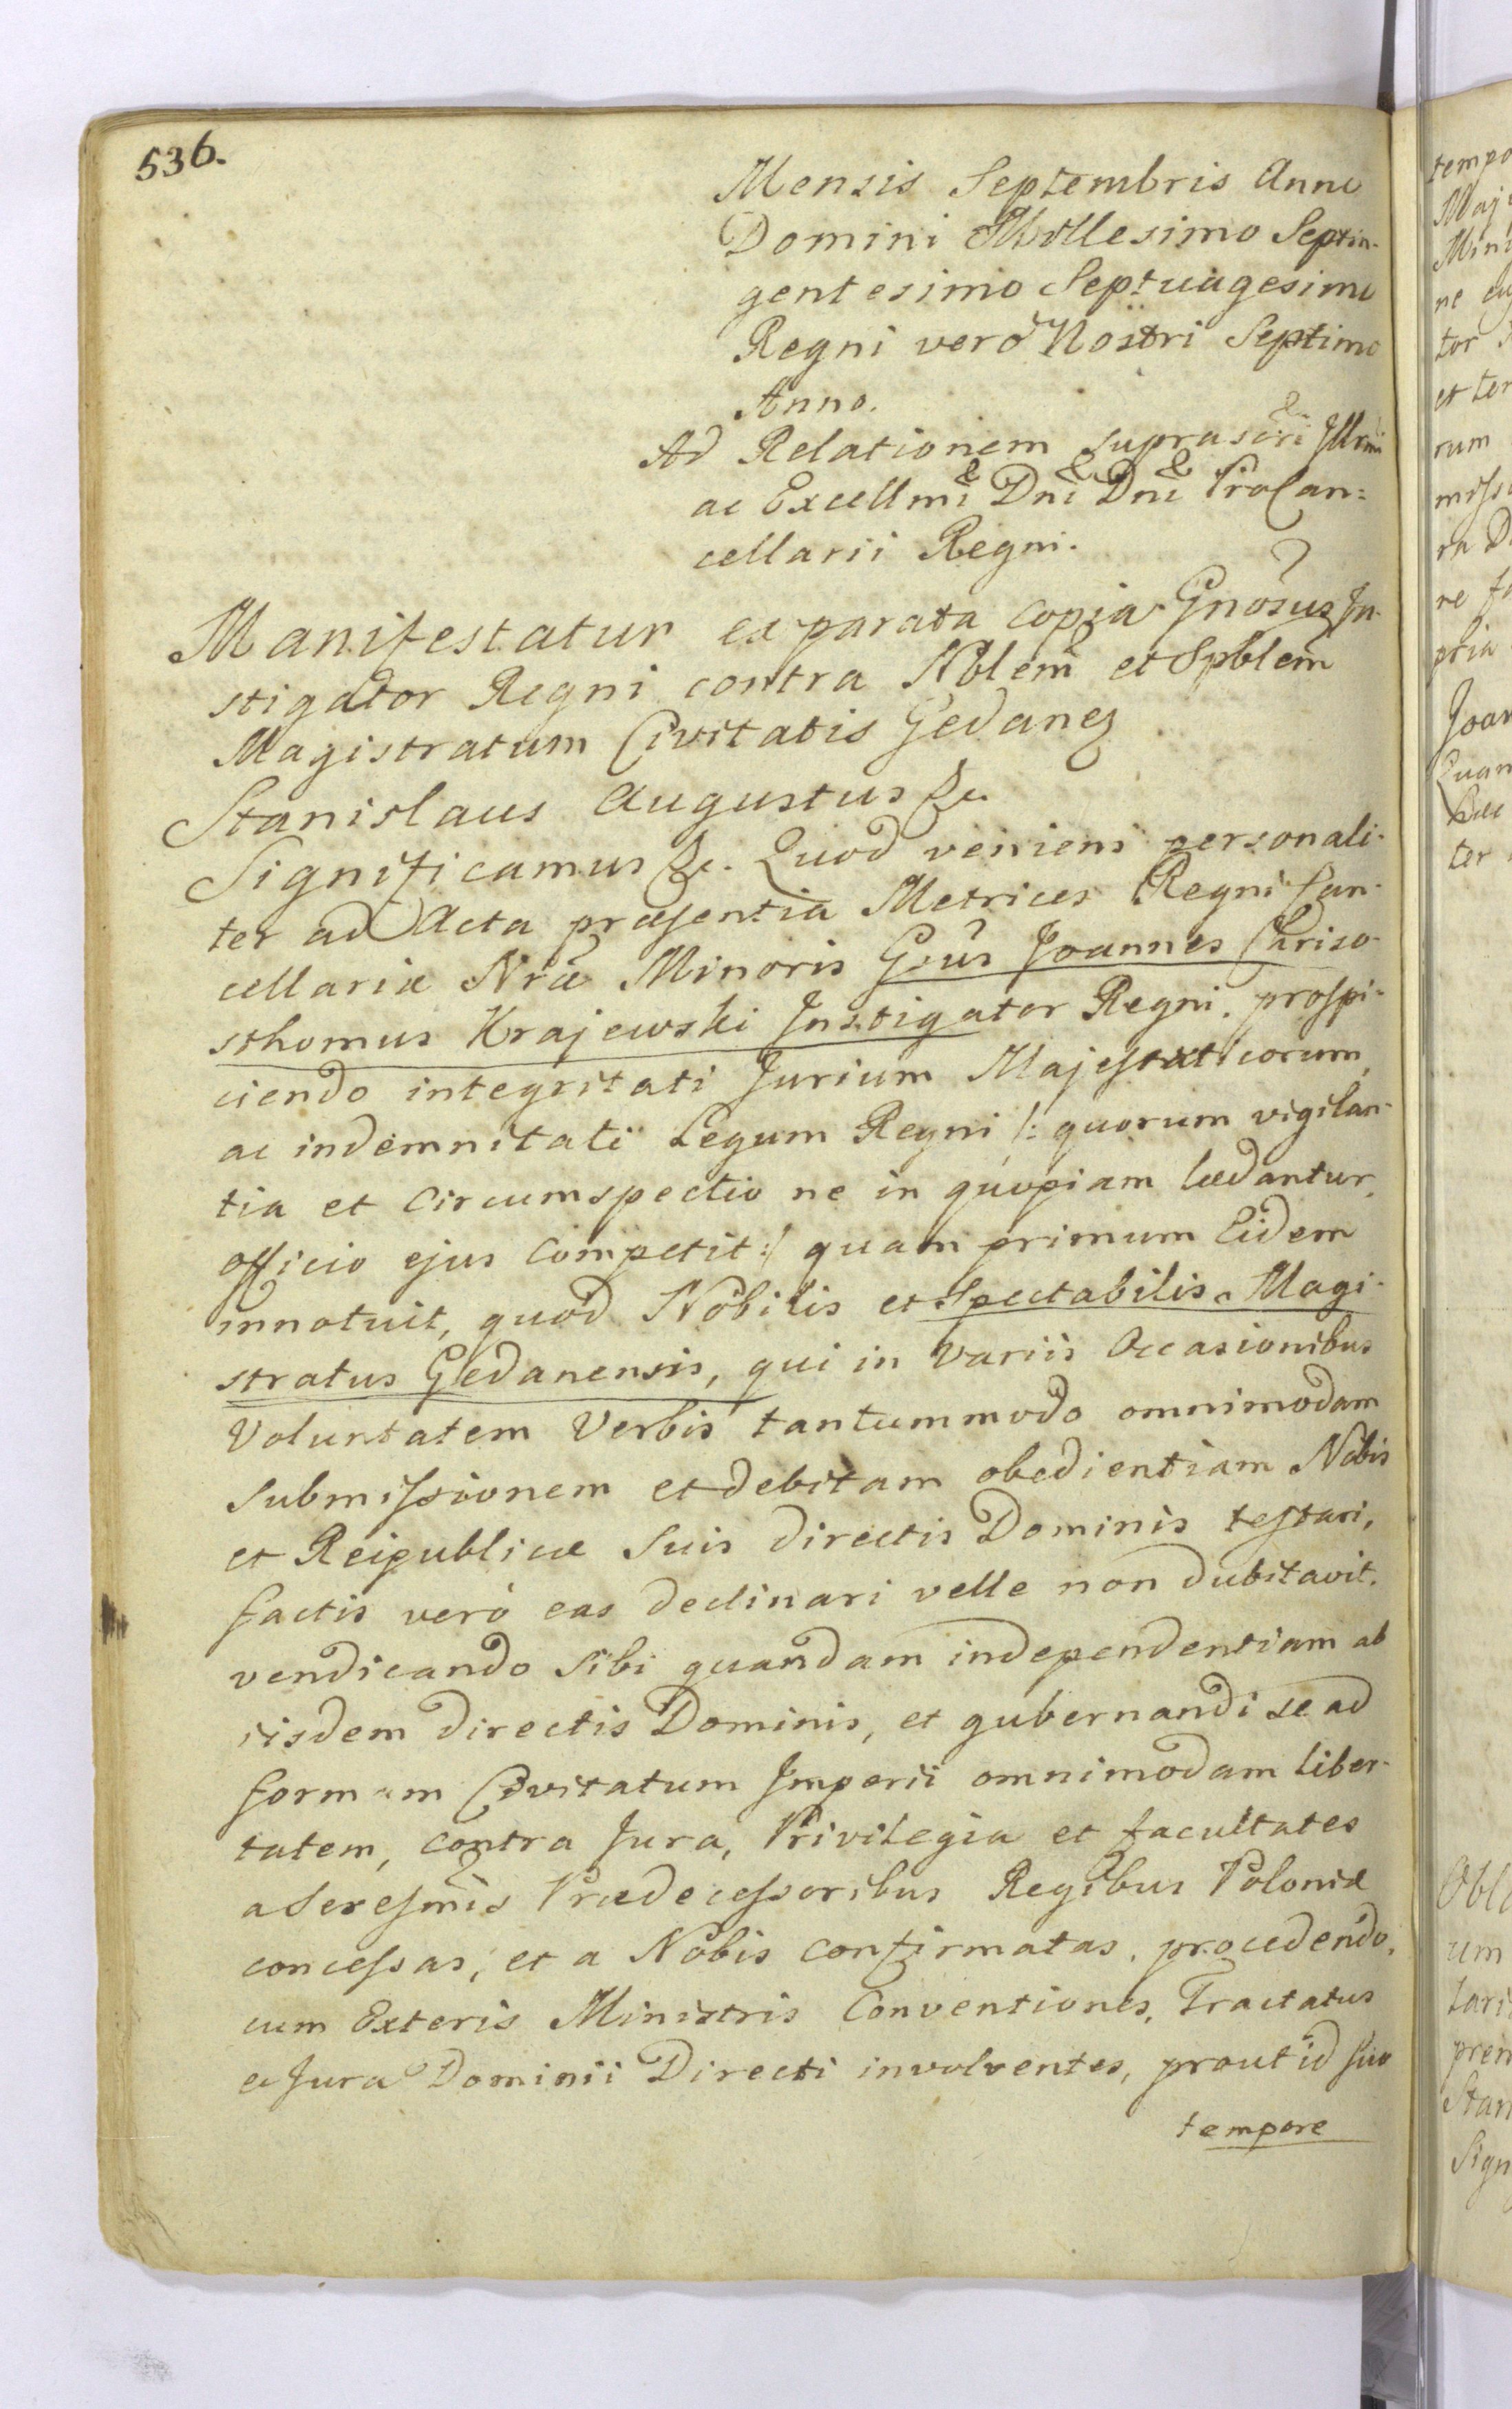 536.
Mensis Septembris Anno
Domini Millesimo Septin-
gentesimo Septuagesimo
Regni verò Nostri Septimo
Anno.
Ad Relationem suprascri Illrmi
ac Excellmi Dni Dni ProCan=
cellarii Regni.
Manifestatur ex parata copia Gnosus In-
stigator Regni contra Nblem et Spblem
Magistratum Civitatis Gedanen
Stanislaus Augustus &c.
Significamus &c. Quod veniens personali-
ter ad Acta præsentia Metrices Regni Can-
cellariæ Nræ Minoris Gnsus Joannes Chriso-
sthomus Krajewski Instigator Regni, prospi-
ciendo integritati Jurium Majestaticorum,
ac indemnitati Legum Regni /: quorum vigilan-
tia et Circumspectio ne in quopiam lædantur,
officio ejus Competit :/ quam primum Eidem
innotuit, quod Nobilis et Spectabilis Magi-
stratus Gedanensis, qui in Variis Occasionibus
Voluntatem Verbis tantummodo omnimodam
submissionem et debitam obedientiam Nobis
et Reipublicæ Suis directis Dominis testari,
factis verò eas declinari velle non dubitavit.
vendicando Sibi quandam independentiam ab
iisdem directis Dominis, et gubernandi se ad
formam Civitatum Imperii omnimodam liber-
tatem, contra Jura, Privilegia et facultates
a Seresmis Prædecessoribus Regibus Poloniæ
concessas, et a Nobis confirmatas, procedendo,
cum Exteris Ministris Conventiones, Tractatus
et Jura Dominii Directi involventes, prout id suo
tempore
tempo
Maj
Mini
ne
tor
et ter
rum
miss
ra D
re fa
ptia
Joan
Quan
ter
Obla
um
tari
pren
Stan
Sign